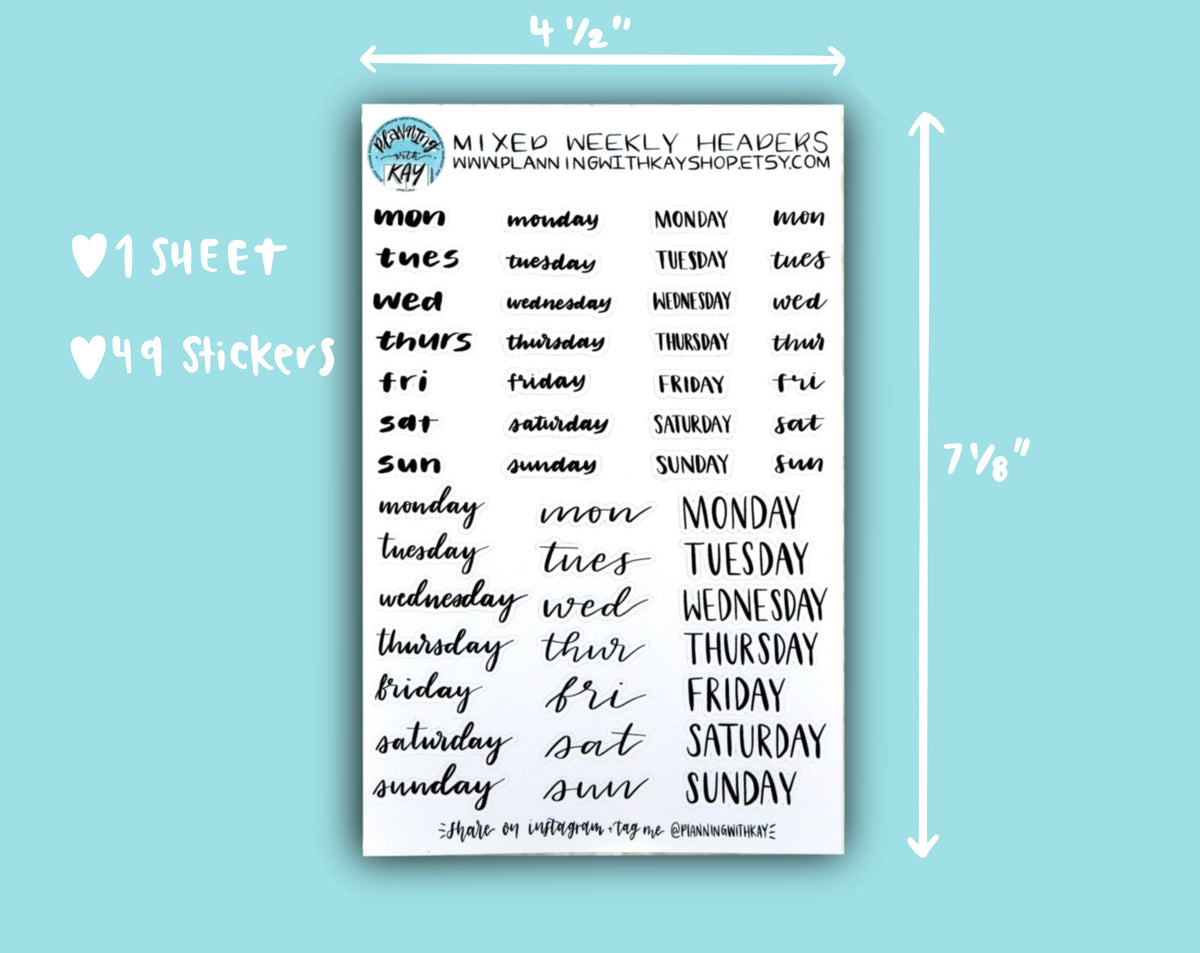 4 1/2"
planning
with
KAY
MIXED WEEKLY HEADERS
WWW.PLANNINGWITHKAYSHOP.ETSY.COM
mon monday MONDAY mon
tues tuesday TUESDAY tues
wed wednesday WEDNESDAY wed
thurs thursday THURSDAY thur
fri friday FRIDAY fri
sat saturday SATURDAY sat
sun sunday SUNDAY sun
monday mon MONDAY
tuesday tues TUESDAY
wednesday wed WEDNESDAY
thursday thur THURSDAY
friday fri FRIDAY
saturday sat SATURDAY
sunday sun SUNDAY
share on instagram + tag me @PLANNINGWITHKAY
♥1 SHEET
♥49 Stickers
7 1/8"